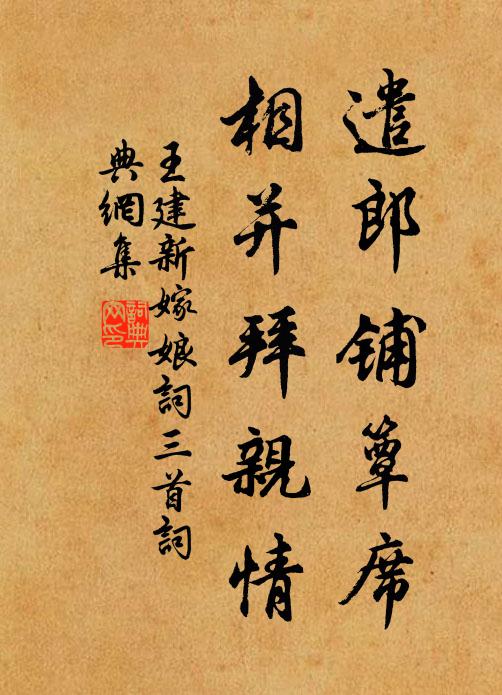 遣郎鋪簟席
相并拜親情
王建新嫁娘詞三首詞
典網集
詞典網印